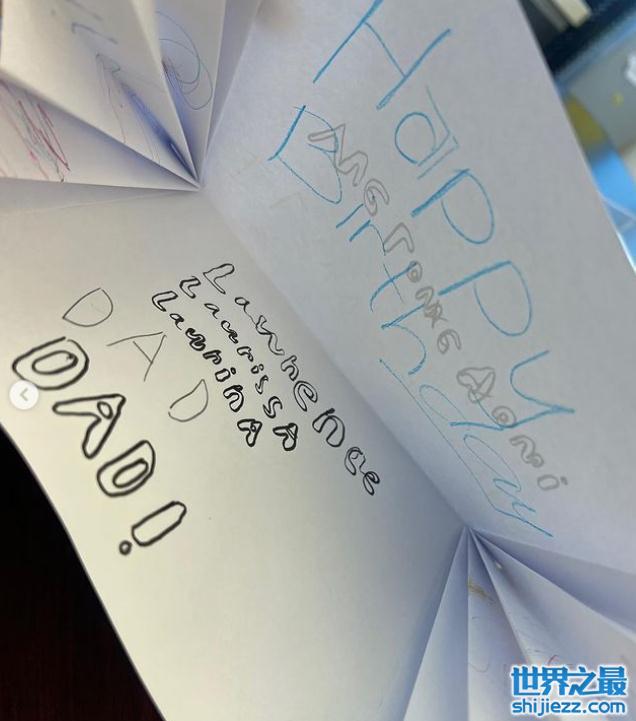 Happy
Birthday
Lawrence
Laurissa
Laurina
DAD
DAD!
世界之最
shijiezz.com